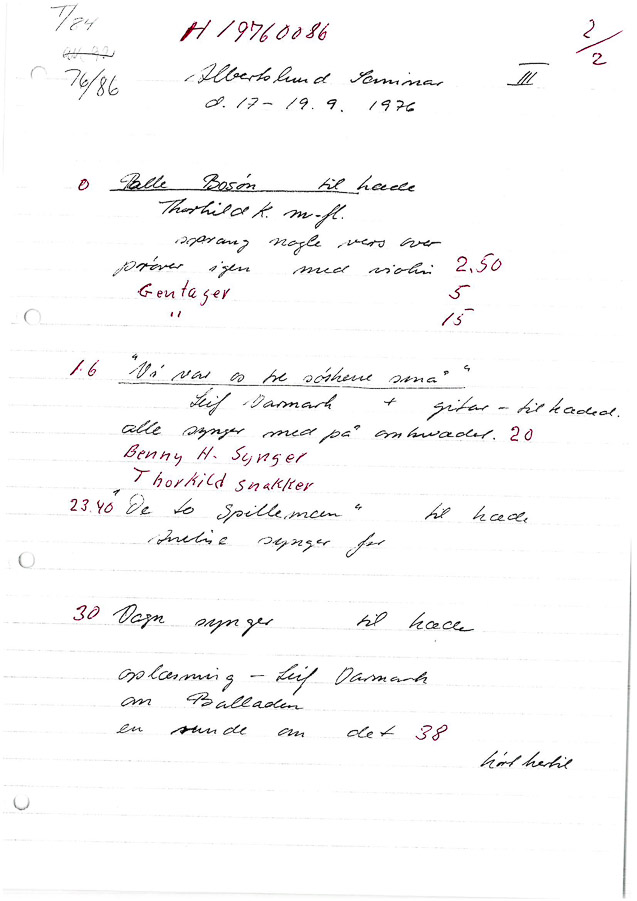 T/24
H 19760086
2/2
76/86
Albertslund Seminar III
d. 17-19.9. 1976
0 Palle Bosøn til kæde
Thorkild K. m-fl.
sprang nogle vers over
prøver igen med violin 2.50
Gentager 5
" 15
1.6 "Vi var os tre søskene små"
Leif Varmark + gitar - til kæded.
alle synger med på omkvædet. 20
Benny H. Synger
Thorkild snakker
23.40 "De to Spillemæn" til kæde
synger for
30 Vagn synger til kæde
oplæsning - Leif Varmark
om Balladen
en runde om det 38
hørt hertil